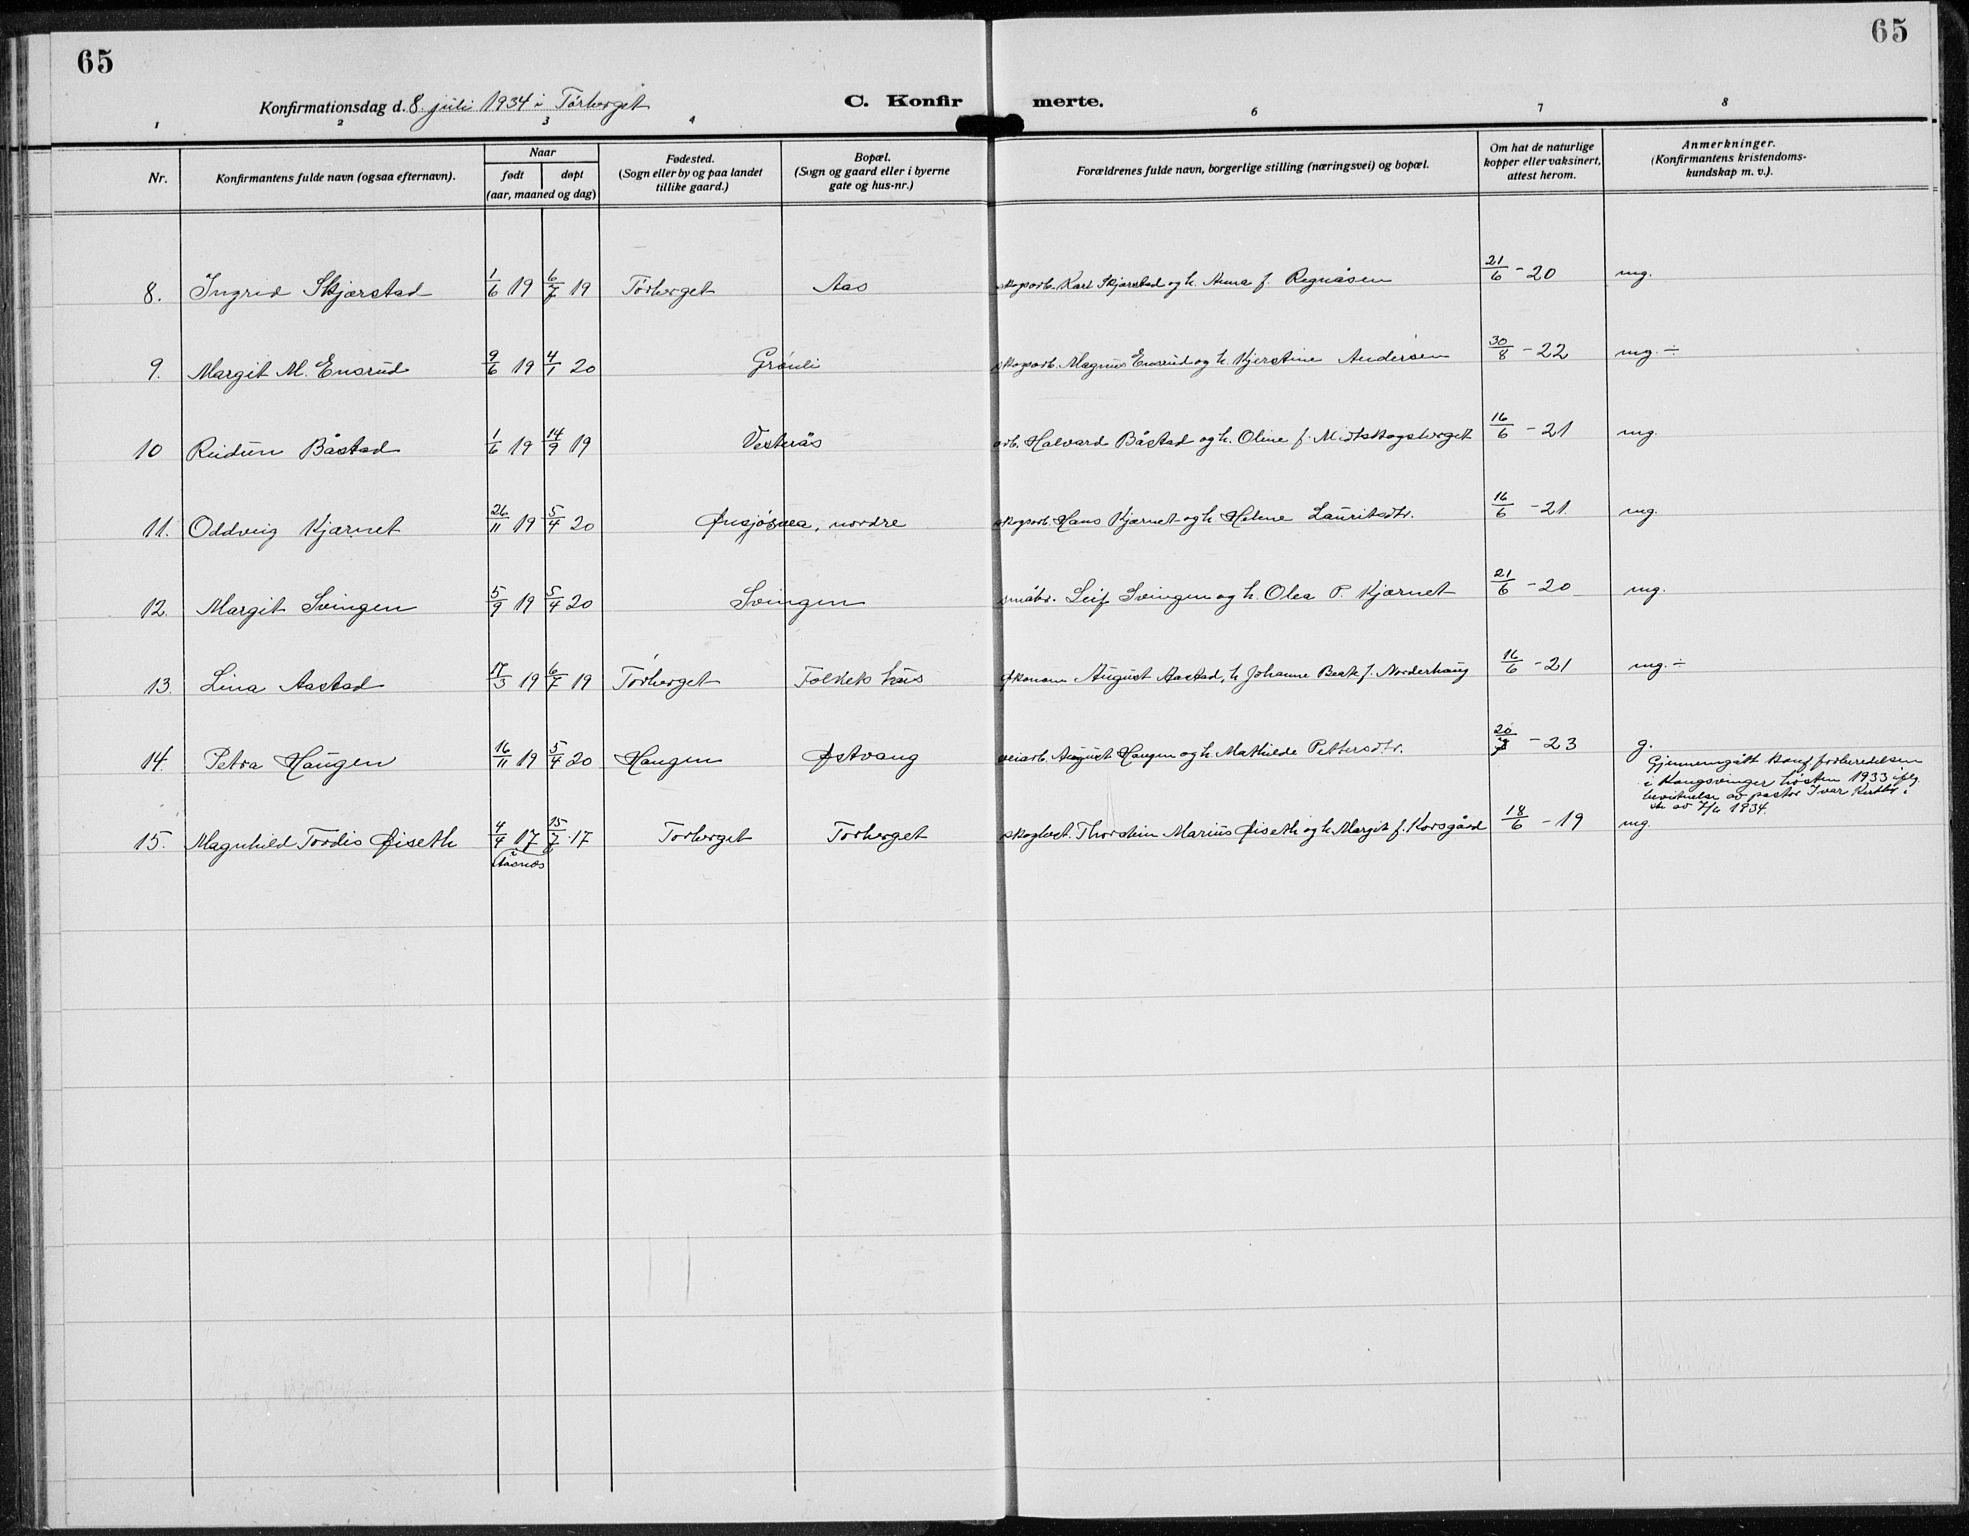 65
65
Konfirmationsdag d. 8. juli 1934 i Tørberget
C. Konfirmerte.
1 2 3 4 6 7 8
Nr.
Konfirmantens fulde navn (ogsaa efternavn).
Naar
født
døpt
(aar, maaned og dag)
Fødested.
(Sogn eller by og paa landet
tillike gaard.)
Bopæl.
(Sogn og gaard eller i byerne
gate og hus-nr.)
Forældrenes fulde navn, borgerlige stilling (næringsvei) og bopæl.
Om hat de naturlige
kopper eller vaksinert,
attest herom.
Anmerkninger.
(Konfirmantens kristendoms-
kundskap m. v.).
8. Ingrid Skjærstad 1/6 19 6/7 19 Tørberget Aas skogsarb. Karl Skjærstad og h. Anna f. Regnåsen 21/6 - 20 mg.
9. Margit M. Ensrud 9/6 19 4/1 20 Grønli skogsarb. Magnus Ensrud og h. Kjerstine Andersen 30/8 - 22 mg. ÷
10 Reidun Båstad 1/6 19 14/9 19 Vesterås arb. Halvard Båstad og h. Oline f. Midtskogsberget 16/6 - 21 mg.
11. Oddveig Kjærnet 26/11 19 5/4 20 nordre skogsarb. Hans Kjærnet og h. Helene Lauritsdtr. 16/6 - 21 mg.
12. Margit Svingen 5/9 19 5/4 20 Svingen småbr. Leif Svingen og h. Olea P. Kjærnet 21/6 - 20 mg.
13. Lina Aastad 17/3 19 6/7 19 Tørberget Folkets hus økonom August Aastad, h. Johanne Beate f. Norderhaug 16/6 - 21 mg. ÷
14. Petra Haugen 16/11 19 5/4 20 Haugen Østvang veiarb. August Haugen og h. Mathilde Pettersdtr. - 23 g.
Gjennemgått konf. forberedelsen
i Kongsvinger høsten 1933 iflg.
bevitnelse av pastor Ivar
av 7/6 1934.
15. Magnhild Tordis Øiseth 4/4 17 15/7 17 Tørberget Tørberget Thorstein Marius Øiseth og h. Margit f. Korsgård 18/6 - 19 mg.
(Åsnes